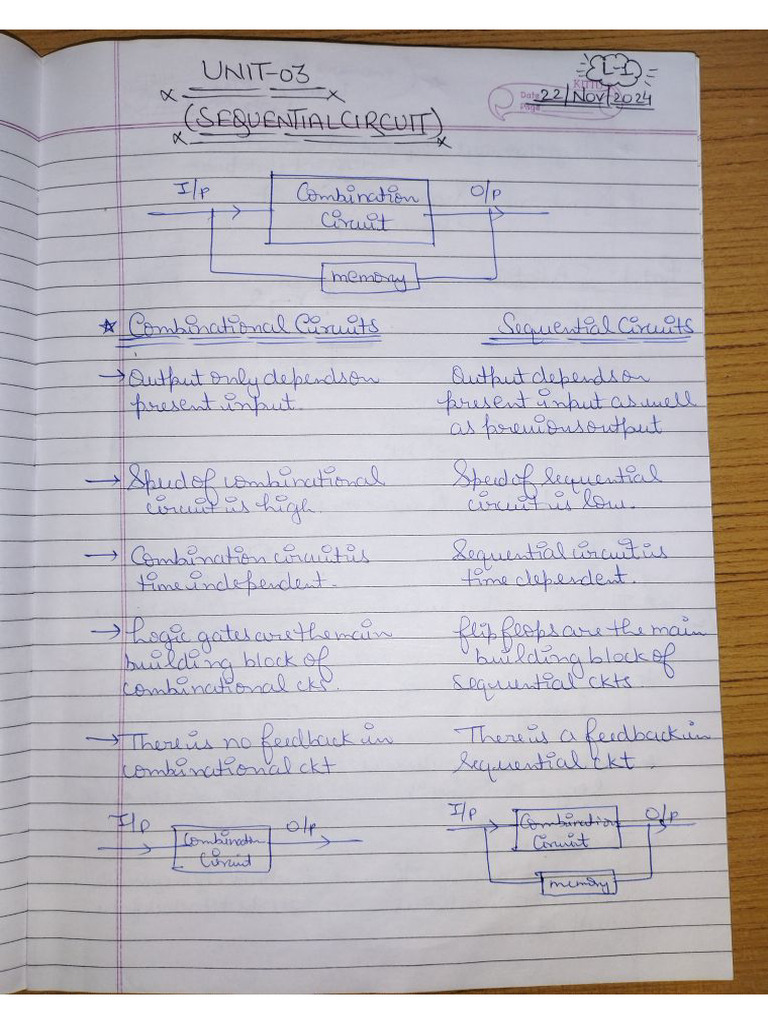 UNIT-03
L-1
Date 22/Nov/2024
Page
(SEQUENTIAL CIRCUIT)
I/p
Combination
Circuit
O/p
memory
Combinational Circuits
Sequential Circuits
→ Output only depends on
present input.
Output depends on
present input as well
as previous output
→ Speed of combinational
circuit is high.
Speed of sequential
circuit is low.
→ Combination circuit is
time independent.
Sequential circuit is
time dependent.
→ Logic gates are the main
building block of
combinational ckts.
flip flops are the main
building block of
sequential ckts.
→ There is no feedback in
combinational ckt
There is a feedback in
sequential ckt.
I/p
Combination
Circuit
O/p
I/p
Combination
Circuit
O/p
memory